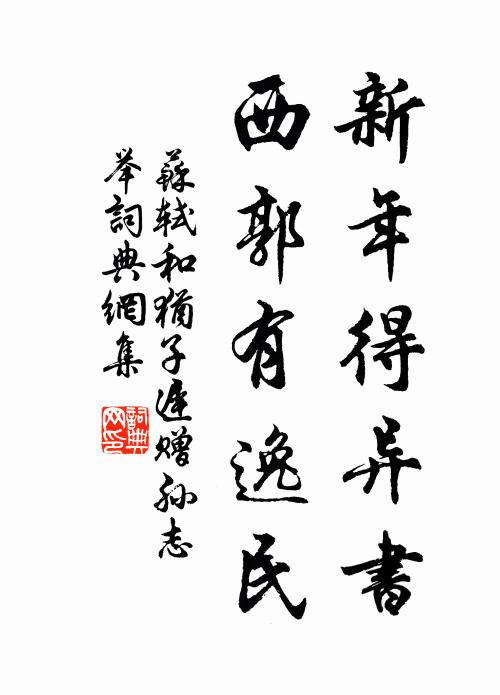 新年得异書
西郭有逸民
蘇軾和猶子遲贈孙志
举詞典網集
詞典
网印